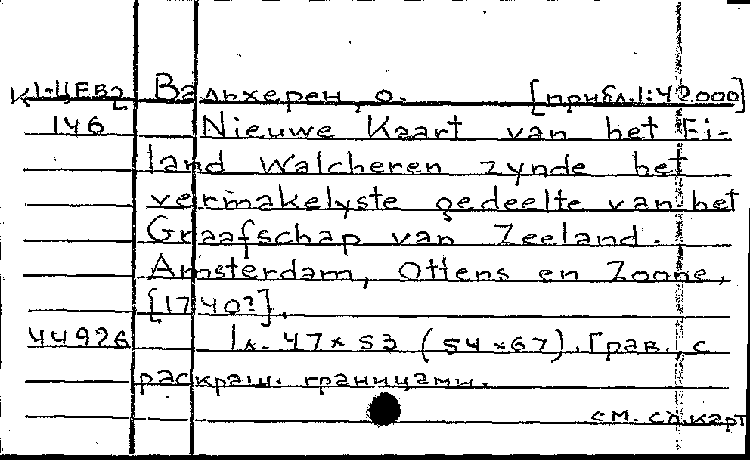 К1-ЦЕВ2 Вальхерен, о. [прибл.1:42.000]
146 Nieuwe Kaart van het Ei-
land Walcheren zynde het
vermakelyste gedeelte van het
Graafschap van Zeeland.
Amsterdam, Ottens en Zoone,
[1740?].
44926 1л. 47×53 (54×67). Грав. с
раскраш. границами.
см. сл. карт